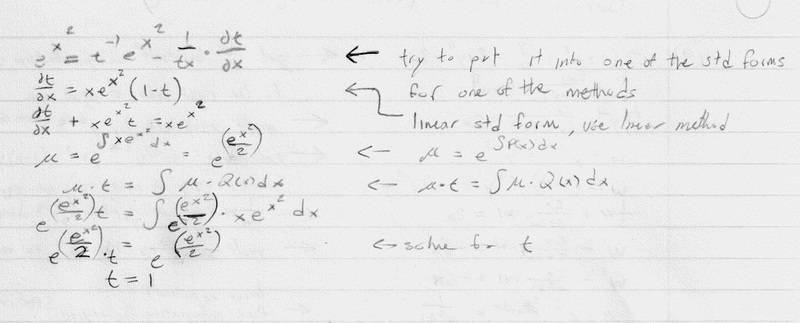 e^{x^2} = t^{-1} e^{x^2} - \frac{1}{tx} \cdot \frac{\partial t}{\partial x} ← try to put it into one of the std forms
\frac{\partial t}{\partial x} = xe^{x^2} (1-t) ← for one of the methods
\frac{\partial t}{\partial x} + xe^{x^2} t = xe^{x^2} linear std form, use linear method
μ = e^{∫xe^{x^2} dx} = e^{(\frac{e^{x^2}}{2})} ← μ = e^{∫P(x)dx}
μ·t = ∫ μ·Q(x)dx ← μ·t = ∫μ·Q(x)dx
e^{(\frac{e^{x^2}}{2})} t = ∫ e^{(\frac{e^{x^2}}{2})} · xe^{x^2} dx
e^{(\frac{e^{x^2}}{2})} · t = e^{(\frac{e^{x^2}}{2})} ← solve for t
t = 1